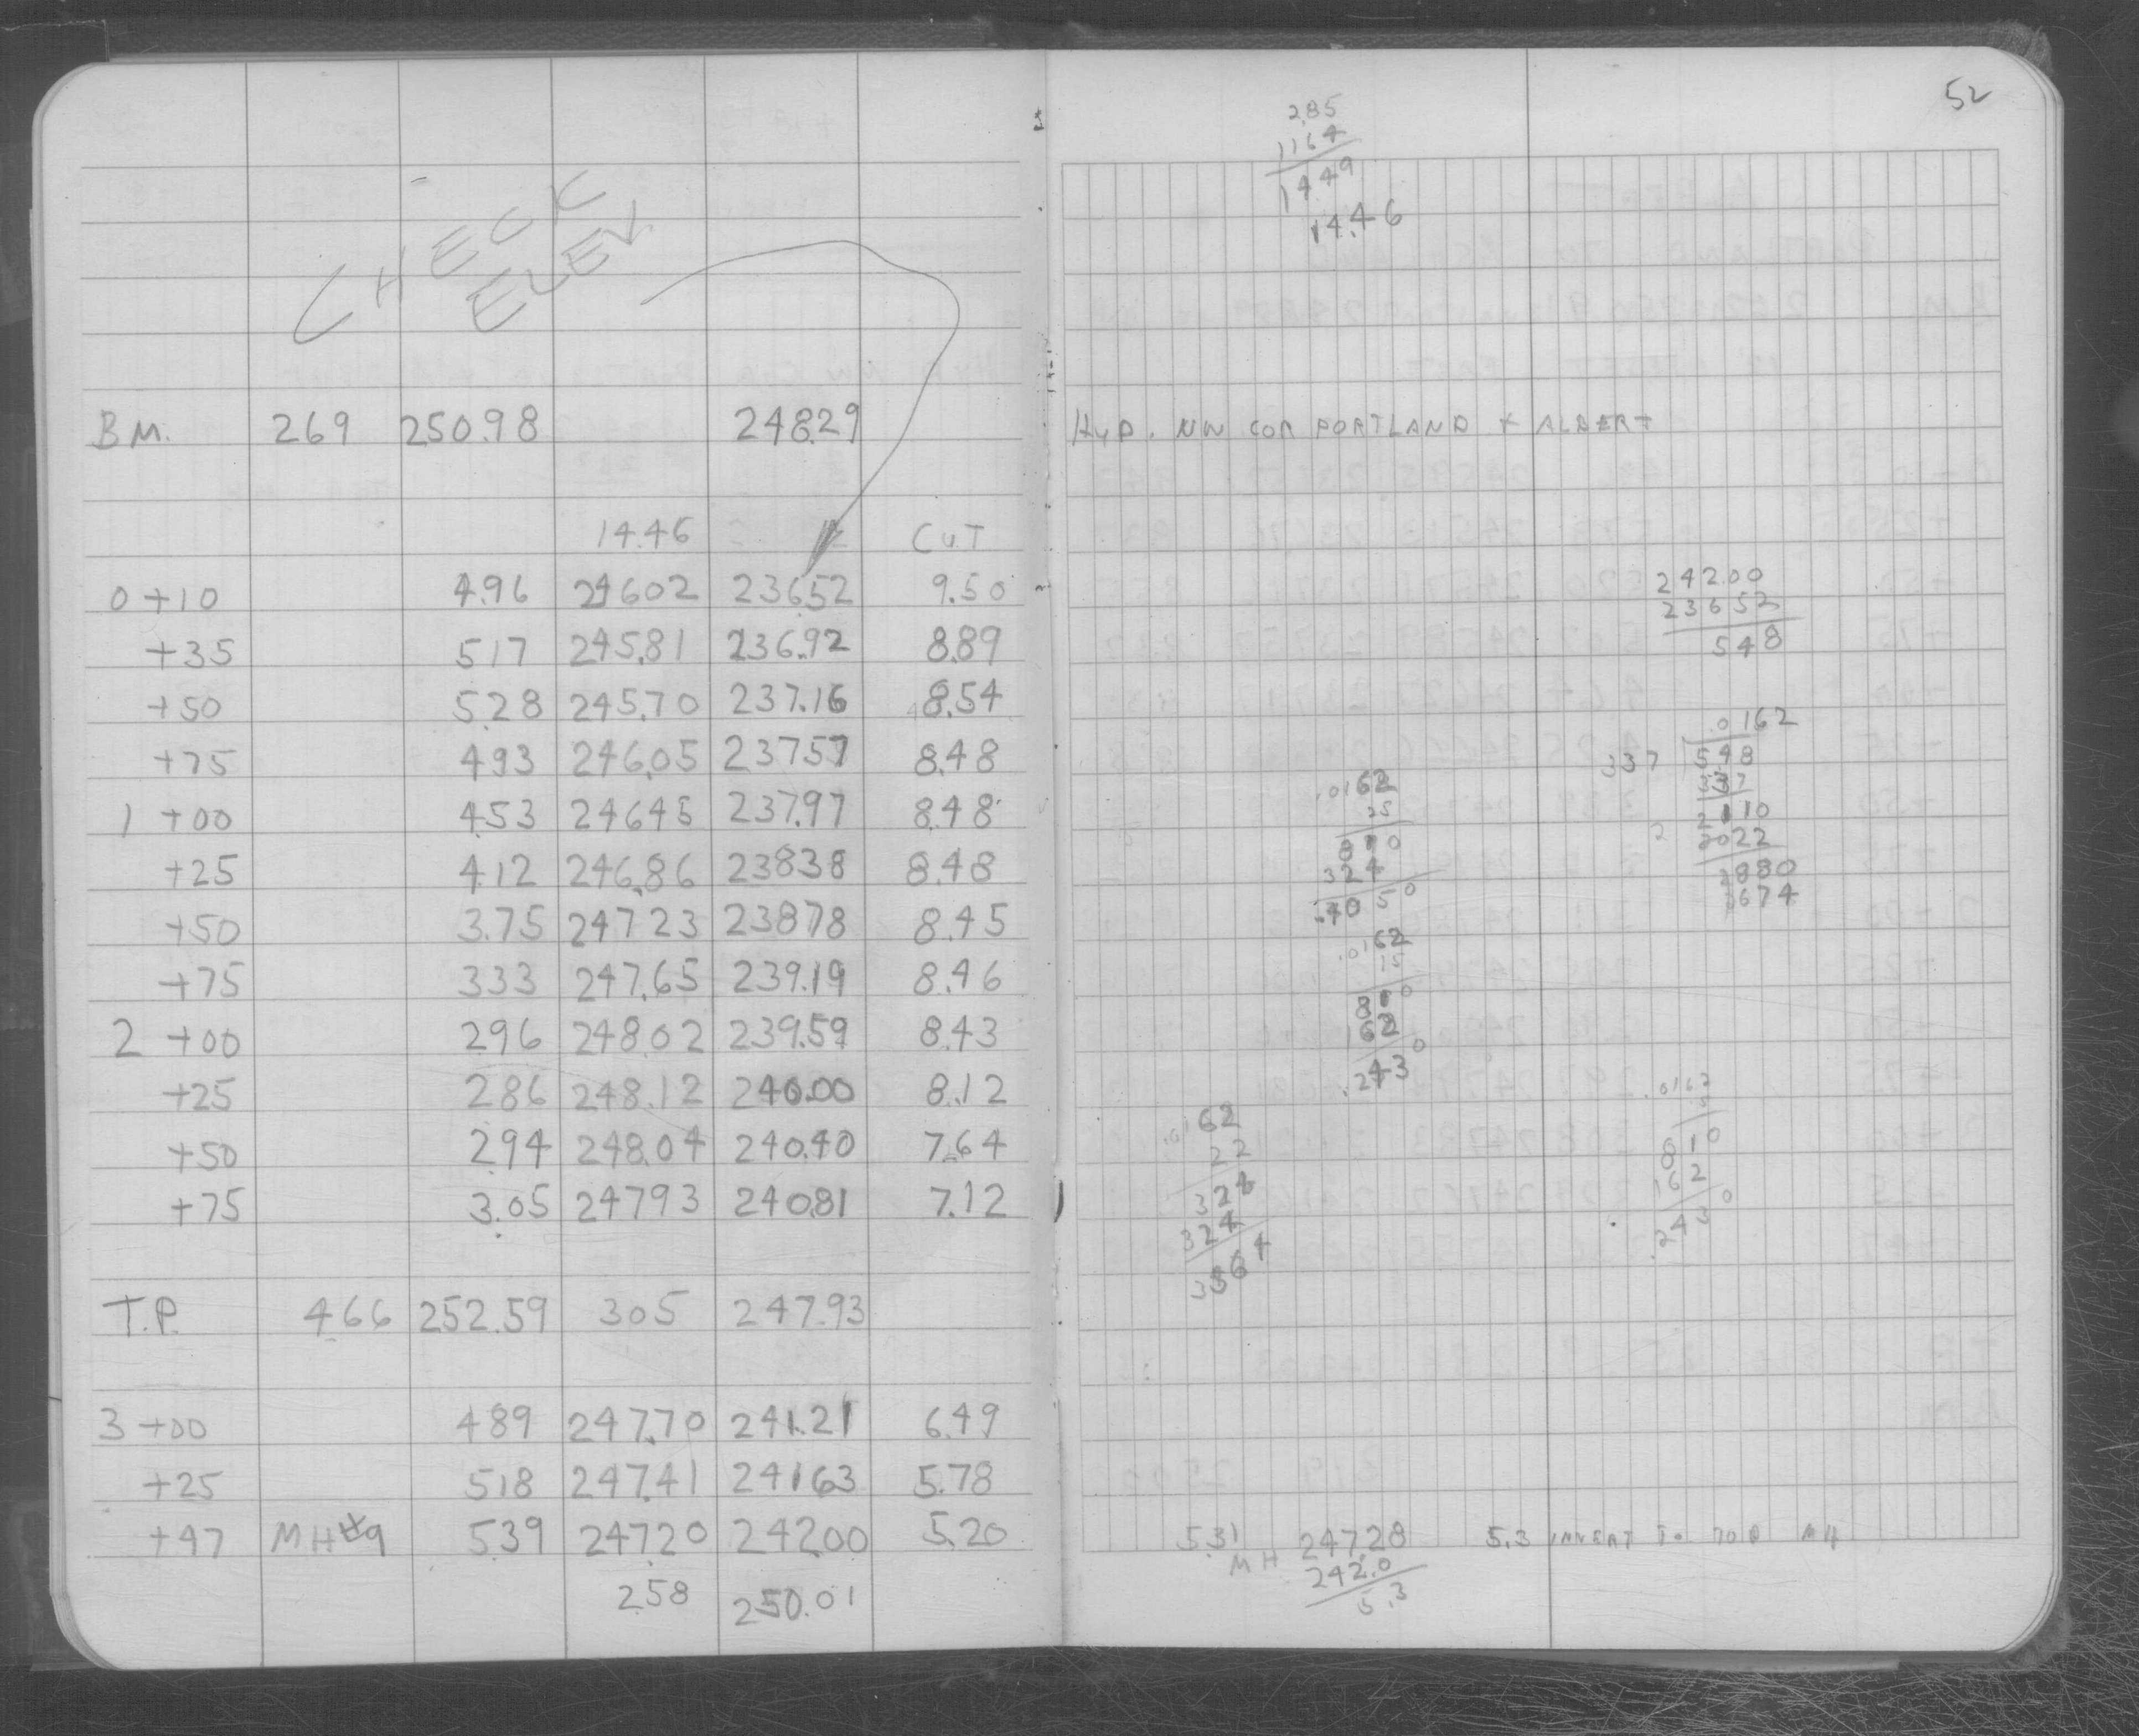 CHECK
ELEV.
BM. 269 250.98 248.29
14.46 CUT
0+10 4.96 24602 236.52 9.50
+35 517 245.81 236.92 8.89
+50 5.28 245.70 237.16 8.54
+75 493 246.05 23757 8.48
1 +00 453 24645 237.97 8.48
+25 4.12 246.86 23838 8.48
+50 3.75 24723 23878 8.45
+75 333 247.65 239.19 8.46
2 +00 296 248.02 239.59 8.43
+25 286 248.12 240.00 8.12
+50 294 248.04 240.40 7.64
+75 3.05 24793 240.81 7.12
T.P. 4.66 252.59 305 247.93
3+00 489 247.70 241.21 6.49
+25 518 247.41 24163 5.78
+47 MH#9 539 24720 24200 5.20
258 250.01
52
2.85
1164
1449
14.46
HYD. NW COR PORTLAND + ALBERT
242.00
236 52
548
.0162
337 548
337
2110
2022
880
674
.0162
25
810
324
.4050
.0162
15
810
162
.2430
.0162
22
324
324
3564
.0162
15
810
162
.2430
5.31
MH 247.28 5.3 INVERT TO TOP MH
242.0
5.3